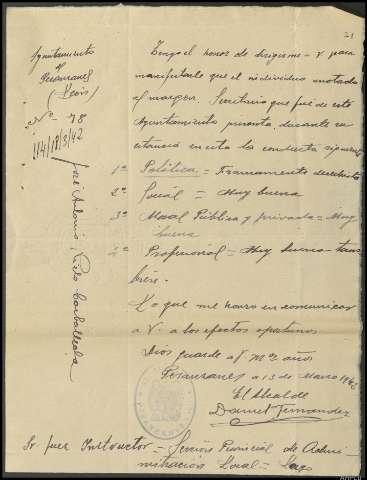 21
Ayuntamiento
de
Peranzanes
(León)
Nº 78
114/18/3/42
José Antonio Carballeda
Tengo el honor de dirigirme a V para
manifestarle que el individuo anotado
al margen, Secretario que fue de este
Ayuntamiento durante su
estancia en esta la conducta siguiente
1º Política = Francamente derechista
2º Social = Muy buena
3º Moral Pública y privada = Muy
buena
4º Profesional = Muy buena tam
bién.
Lo que me honro en comunicar
a V. a los efectos oportunos
Dios guarde a V. ms. años
Peranzanes a 13 de Marzo 1942
El Alcalde
Daniel Fernandez
Sr Juez Instructor = Servicio Provincial de Admi
nistración Local = Lugo